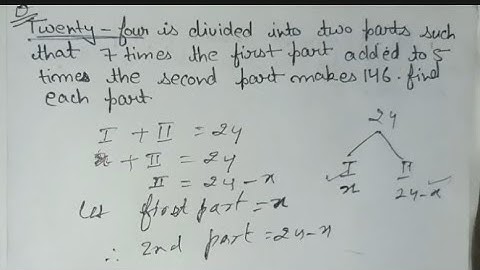 Q
Twenty-four is divided into two parts such
that 7 times the first part added to 5
times the second part makes 146. find
each part.
I + II = 24
x + II = 24
II = 24 - x
Let first part = x
∴ 2nd part = 24 - x
24
I II
x 24-x